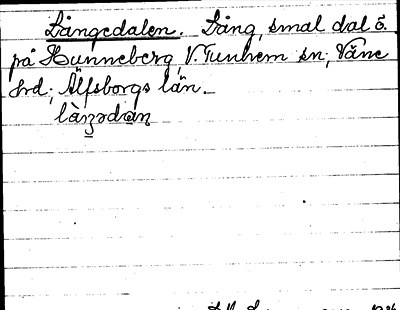 Långedalen. Lång, smal dal ö.
på Hunneberg, V. Tunhem sn; Väne
hrd; Älfsborgs län.